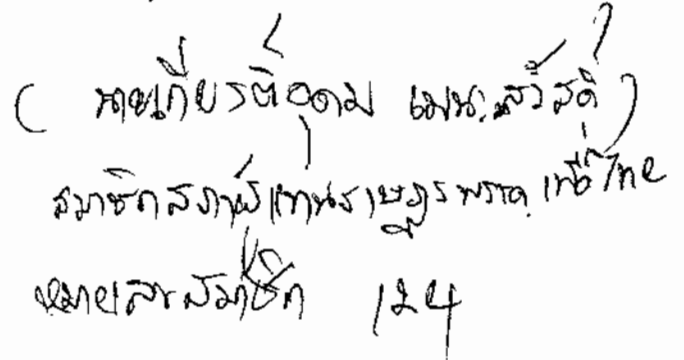 (นายเกียรติ์อุดม เมนะสวัสดิ์)
สมาชิกสภาผู้แทนราษฎร พรรคเพื่อไทย
หมายเลขสมาชิก